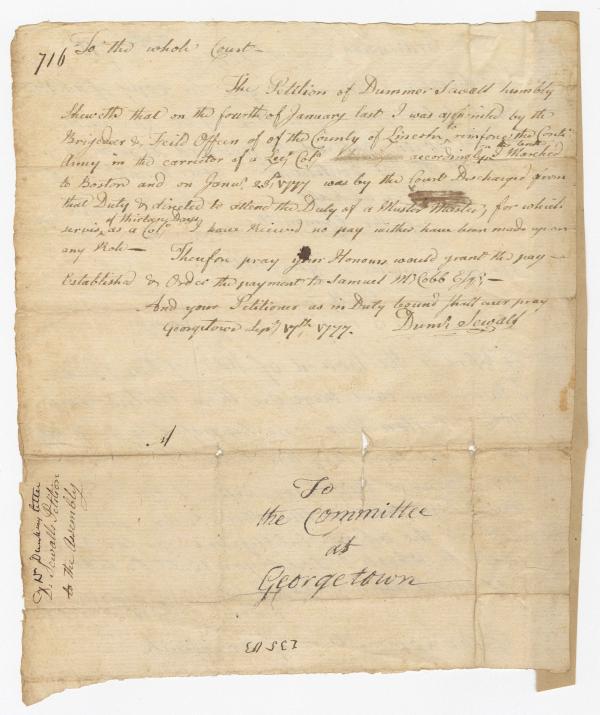 716
To the whole Court—
The Petition of Dummer Sewall humbly
Sheweth that on the fourth of January last I was appointed by the
Brigedeer & Feild Officers of of the County of Lincoln to reinforce the Contl
Army in the carrictor of a Col. according Marched
to Boston and on Janu. 23d 1777 was by the Court Discharged from
that Duty & directed to attend the Duty of a Muster Master, for which
servis as a Col. of Thirteen Days I have received no pay neither have been made up on
any Role—
Therefore pray your Honours would grant the pay—
Established & Order the payment to Samuel McCobb Esqr,—
And your Petitioner as in Duty bound shall ever pray
Georgetown Sepr, 17th, 1777.
Dumr Sewall
To
the Committee
at
Georgetown
D. Sewalls Petition
to the Assembly